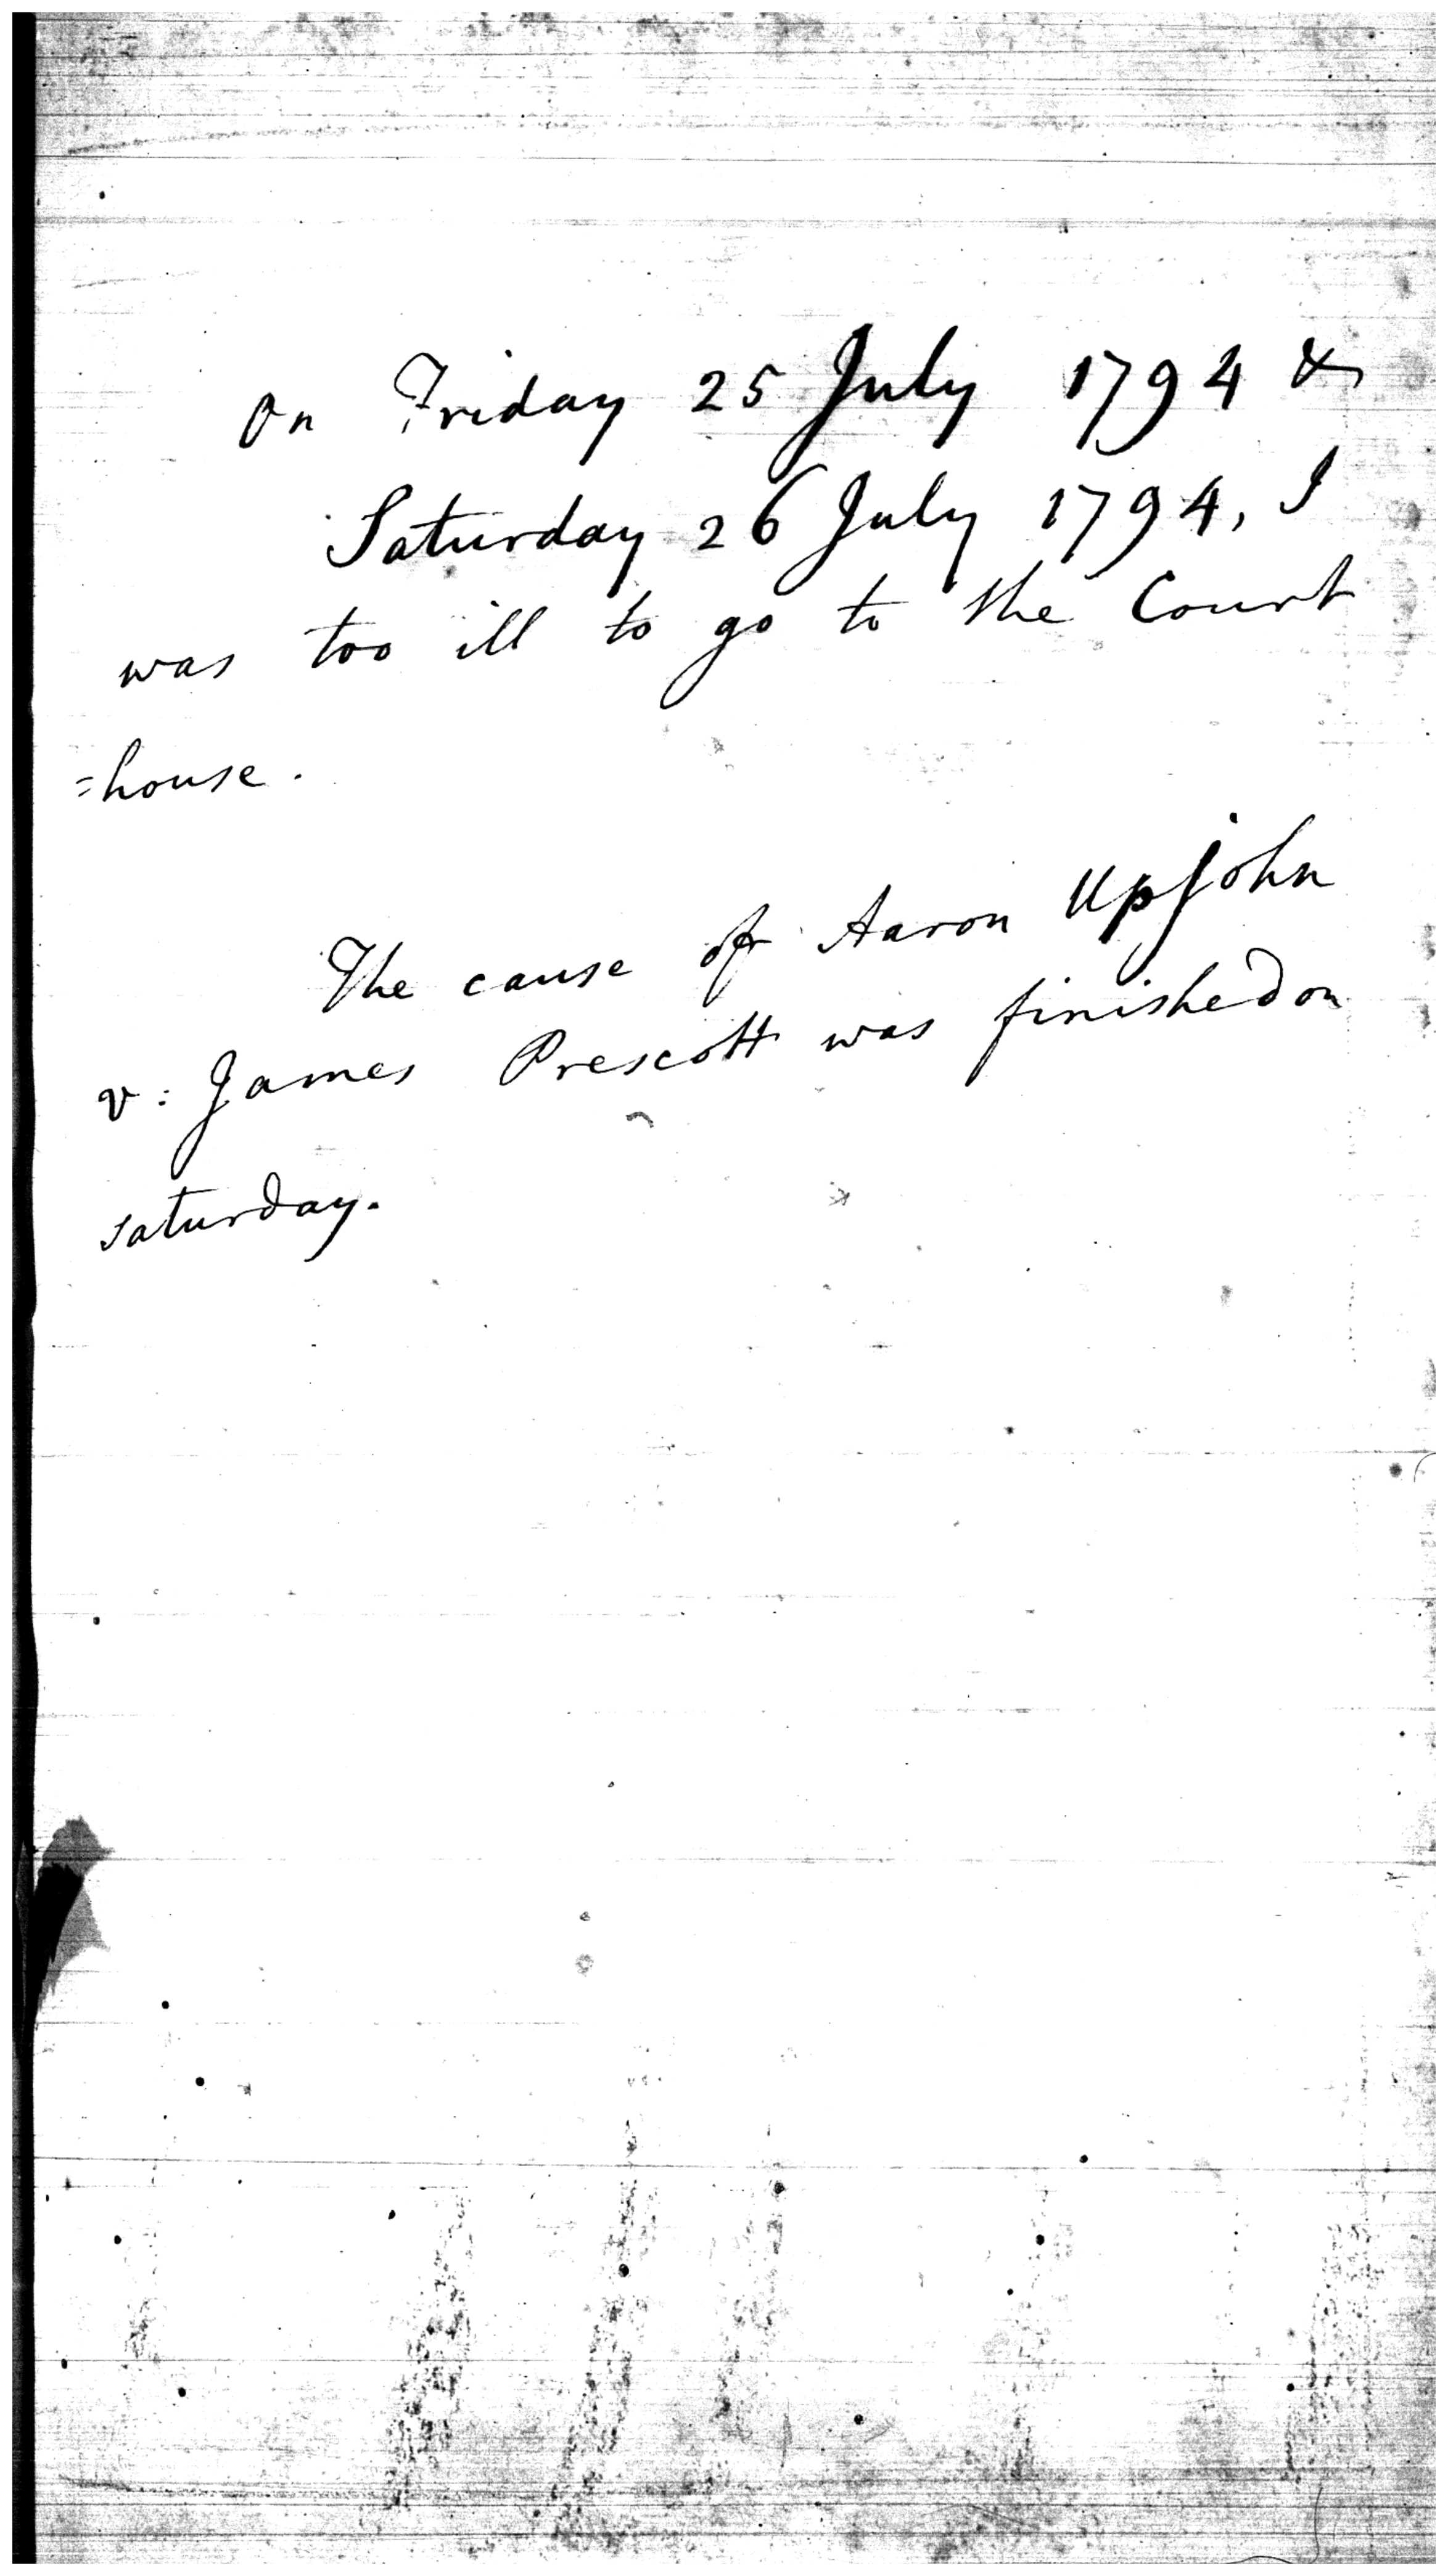 On Friday 25 July 1794 &
Saturday 26 July 1794, I
was too ill to go to the Court
=house.
The cause of Aaron Upjohn
v: James Prescott was finished on
saturday.